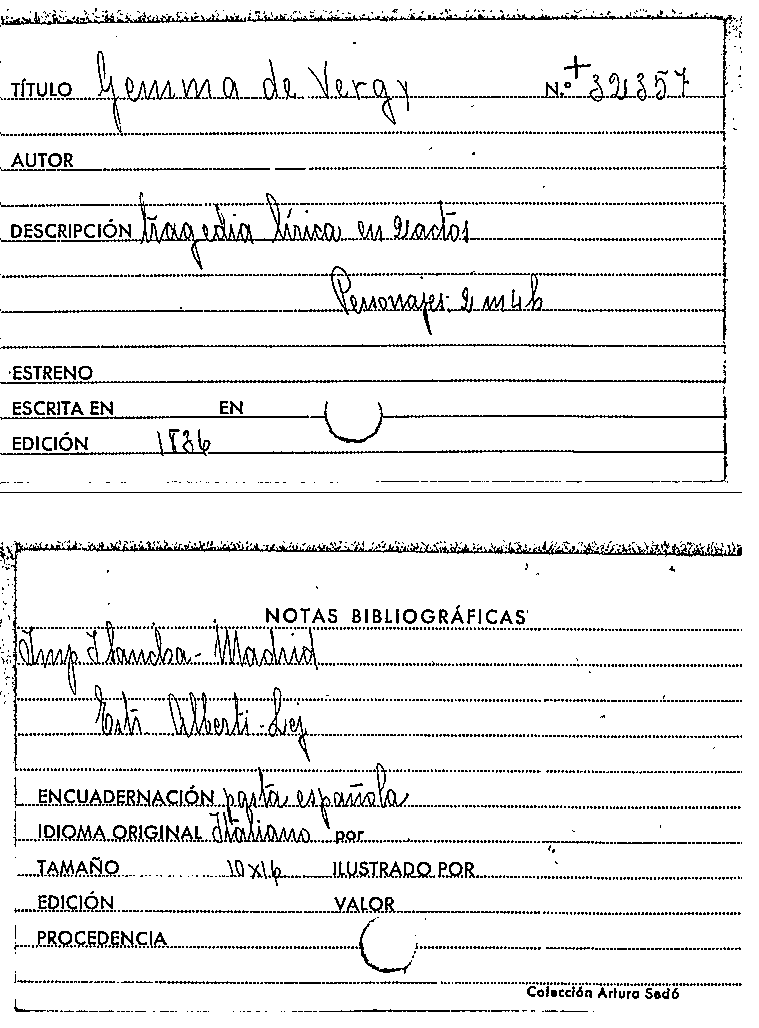 TÍTULO Gemma de Vergy N.º + 32357
AUTOR
DESCRIPCIÓN tragedia lírica en 2 actos
Personajes: 2 m 4 h
ESTRENO
ESCRITA EN EN
EDICIÓN 1836
NOTAS BIBLIOGRÁFICAS
Imp Sancha - Madrid
Alberti - Lej
ENCUADERNACIÓN pasta española
IDIOMA ORIGINAL Italiano por
TAMAÑO 10x16 ILUSTRADO POR
EDICIÓN VALOR
PROCEDENCIA
Colección Arturo Sedó